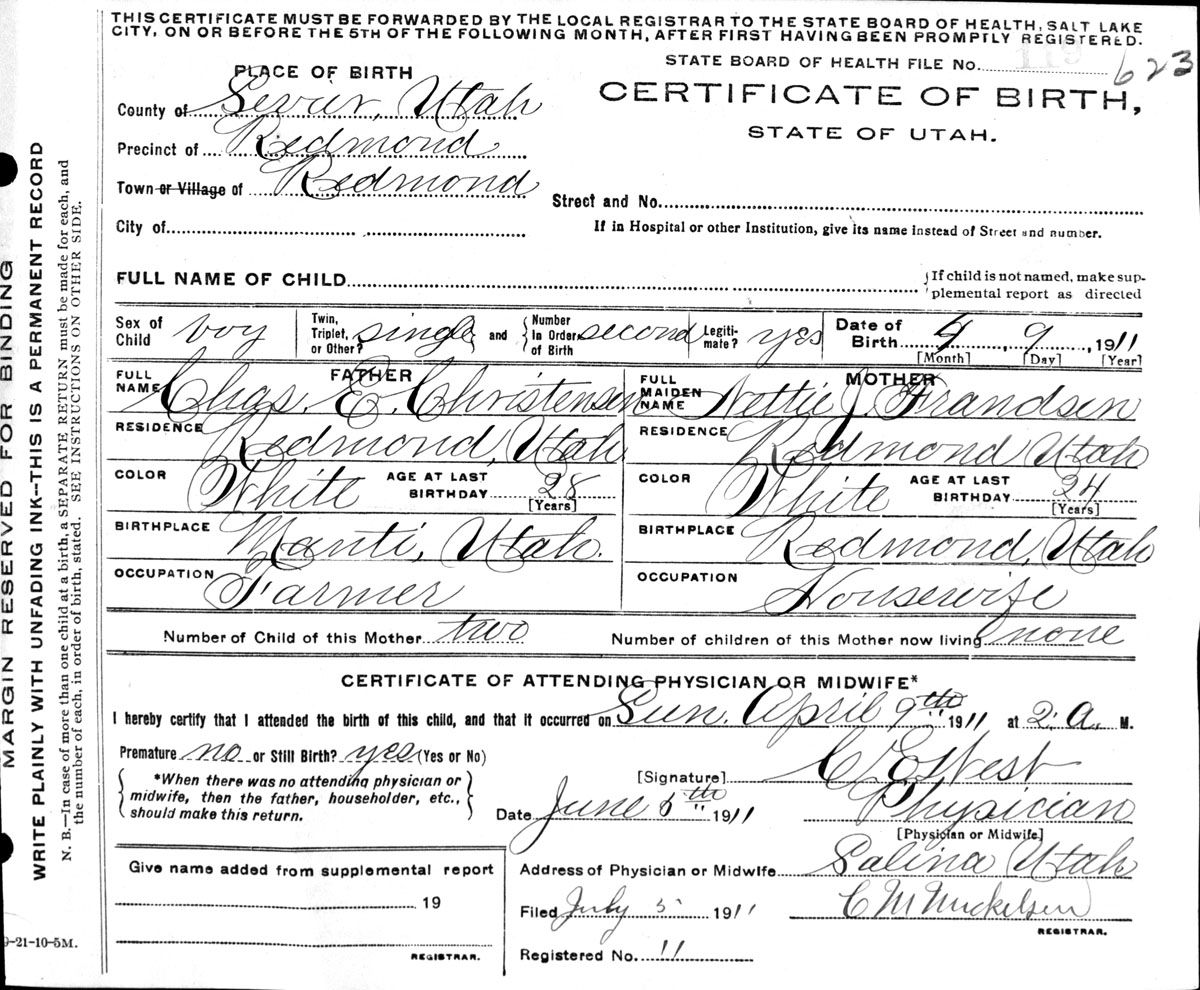 THIS CERTIFICATE MUST BE FORWARDED BY THE LOCAL REGISTRAR TO THE STATE BOARD OF HEALTH, SALT LAKE
CITY, ON OR BEFORE THE 5TH OF THE FOLLOWING MONTH, AFTER FIRST HAVING BEEN PROMPTLY REGISTERED.
STATE BOARD OF HEALTH FILE NO. 623
PLACE OF BIRTH
CERTIFICATE OF BIRTH,
STATE OF UTAH.
County of Sevier, Utah
Precinct of Redmond
Town or Village of Redmond
Street and No.
City of
If in Hospital or other Institution, give its name instead of Street and number.
FULL NAME OF CHILD
If child is not named, make sup-
plemental report as directed
Sex of Child boy Twin, Triplet, or Other? single and Number In Order of Birth second Legiti-mate? yes Date of Birth 4, 9, 1911
[Month] [Day] [Year]
FATHER MOTHER
FULL NAME Chas. E. Christensen FULL MAIDEN NAME Nettie J. Frandsen
RESIDENCE Redmond, Utah RESIDENCE Redmond Utah
COLOR White AGE AT LAST BIRTHDAY 28 [Years] COLOR White AGE AT LAST BIRTHDAY 24 [Years]
BIRTHPLACE Manti, Utah. BIRTHPLACE Redmond, Utah
OCCUPATION Farmer OCCUPATION Housewife
Number of Child of this Mother two Number of children of this Mother now living none
CERTIFICATE OF ATTENDING PHYSICIAN OR MIDWIFE*
I hereby certify that I attended the birth of this child, and that it occurred on Sun. April 9th 1911 at 2 A. M.
Premature no or Still Birth? yes (Yes or No)
*When there was no attending physician or
midwife, then the father, householder, etc.,
should make this return.
[Signature] C E West
Date June 5th 1911 Physician
[Physician or Midwife]
Give name added from supplemental report
Address of Physician or Midwife Salina Utah
19
Filed July 5 1911 C M Mickelsen
REGISTRAR.
REGISTRAR.
Registered No. 11
9-21-10-5M.
MARGIN RESERVED FOR BINDING
WRITE PLAINLY WITH UNFADING INK--THIS IS A PERMANENT RECORD
N. B.—In case of more than one child at a birth, a SEPARATE RETURN must be made for each, and
the number of each, in order of birth, stated. SEE INSTRUCTIONS ON OTHER SIDE.